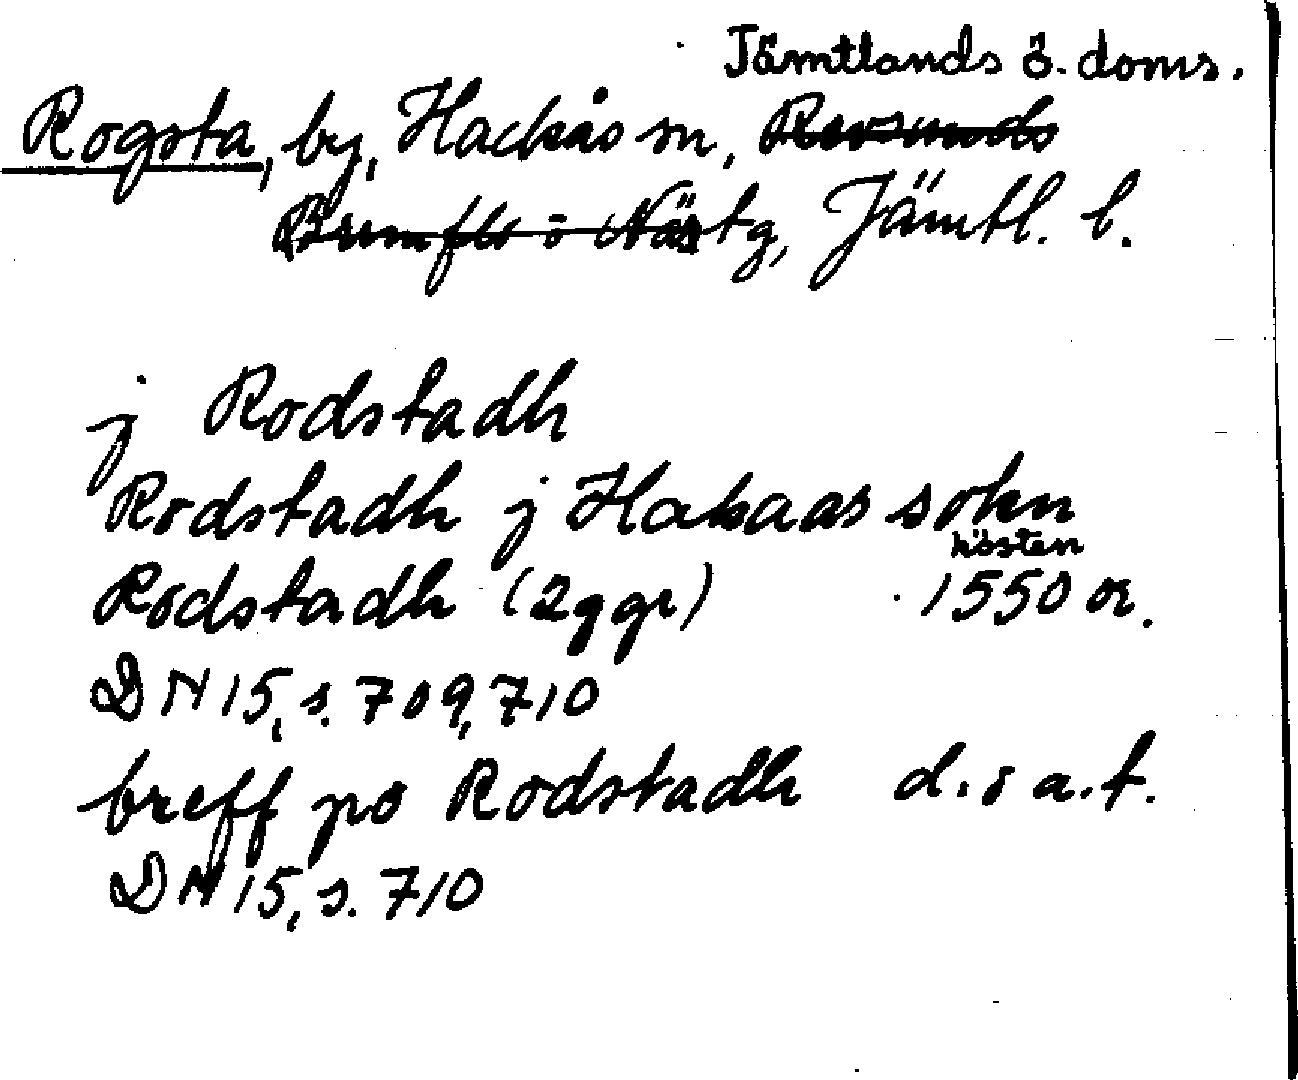 Jämtlands ö. doms.
Rogsta, by, Hackås sn, Revsunds
Brunflo o Näs tg, Jämtl. l.
j Rodstadh
Rodstadh j Hakaas sokn
hösten
Rodstadh (2 ggr) 1550 or.
DN 15, s. 709, 710
breff po Rodstadh d. o a. t.
DN 15, s. 710